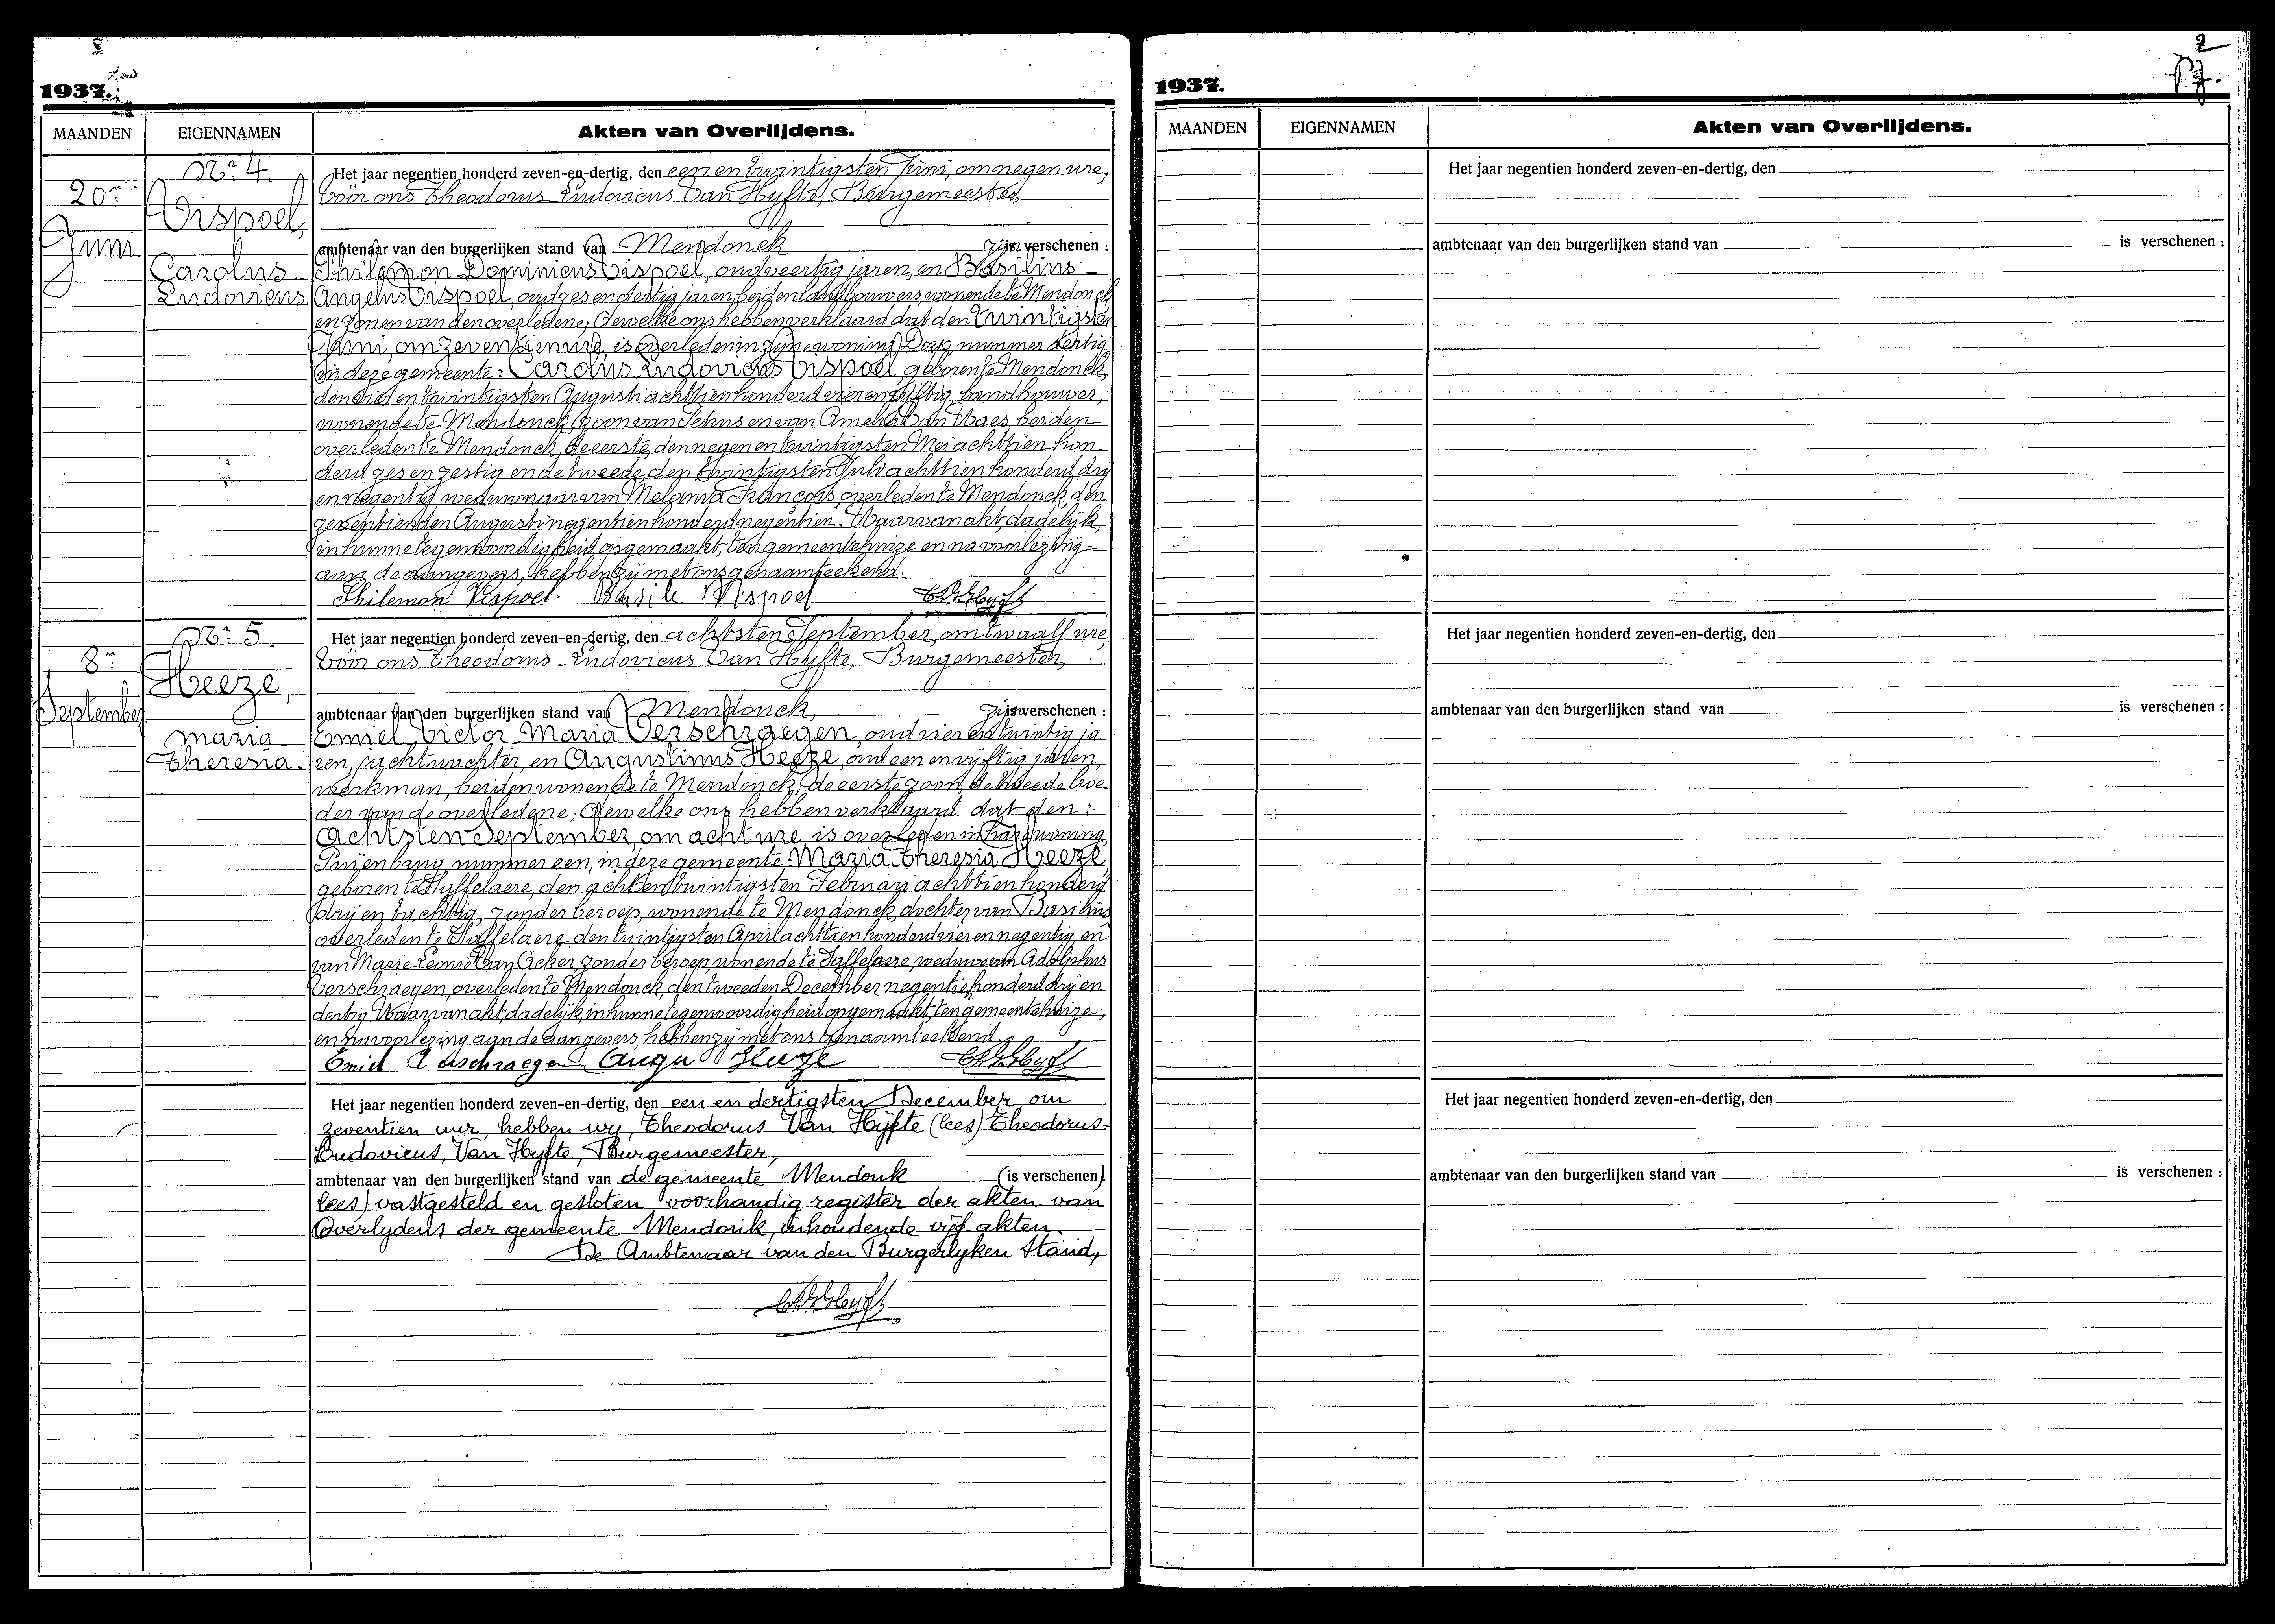 1937.
MAANDEN EIGENNAMEN Akten van Overlijdens.
Nr. 4.
20n
Juni
Vispoel,
Carolus-
Ludovicus
Het jaar negentien honderd zeven-en-dertig, den een en twintigsten Juni, om negen ure,
vóór ons Theodorus-Ludovicus Van Hyfte, Burgemeester
ambtenaar van den burgerlijken stand van Mendonck zijn is verschenen :
Philemon-Dominicus Vispoel, oud veertig jaren, en Basilius-
Angelus Vispoel, oud zes en dertig jaren, beiden landbouwers, wonende te Mendonck
en zonen van den overledene; dewelke ons hebben verklaard dat den twintigsten
Juni, om zeventien ure, is overleden in zijne woning, Dorp, nummer dertig
in deze gemeente: Carolus-Ludovicus Vispoel, geboren te Mendonck,
den drie en twintigsten Augusti achttien honderd vier en vijftig, landbouwer,
wonende te Mendonck, zoon van Petrus en van Amelia Van Waes, beiden
overleden te Mendonck, de eerste, den negen en twintigsten Mei achttien hon-
derd zes en zestig en de tweede, den twintigsten Juli achttien honderd drij
en negentig, weduwnaar van Melania François, overleden te Mendonck, den
zeventienden Augusti negentien honderd negentien. Waarvan akt, dadelijk,
in hunne tegenwoordigheid opgemaakt, ten gemeentehuize en na voorlezing-
aan de aangevers, hebben zij met ons genaamteekend.
Philemon Vispoel. Basile Vispoel
Nr. 5.
8n
September
Heeze,
Maria-
Theresia.
Het jaar negentien honderd zeven-en-dertig, den achtsten September, om twaalf ure,
vóór ons Theodorus-Ludovicus Van Hyfte, Burgemeester,
ambtenaar van den burgerlijken stand van Mendonck, zijn is verschenen :
Emiel-Victor-Maria Verschraegen, oud vier en twintig ja
ren, jachtwachter, en Augustinus Heeze, oud een en vijftig jaren,
werkman, beiden wonende te Mendonck, de eerste zoon, de tweede broe
der van de overledene; dewelke ons hebben verklaard dat den:
achtsten September, om acht ure is overleden in haar woning,
nummer een, in deze gemeente: Maria-Theresia Heeze,
geboren te Saffelaere, den acht en twintigsten Februari achttien honderd
drij en tachtig, zonder beroep, wonende te Mendonck, dochter van Basilius
overleden te Saffelaere, den twintigsten April achttien honderd vier en negentig, en
van Marie-Leonie Van Acker, zonder beroep, wonende te Saffelaere, weduwe van Adolphus
Verschraegen, overleden te Mendonck, den tweeden December negentien honderd drij en
dertig. Waarvan akt, dadelijk, in hunne tegenwoordigheid opgemaakt, ten gemeentehuize,
en na voorlezing aan de aangevers, hebben zij met ons genaamteekend.
Emiel Verschraegen August Heeze
Het jaar negentien honderd zeven-en-dertig, den een en dertigsten December om
zeventien uur, hebben wij, Theodorus Van Hyfte (lees) Theodorus-
Ludovicus, Van Hyfte, Burgemeester,
ambtenaar van den burgerlijken stand van de gemeente Mendonk (is verschenen)
lees) vastgesteld en gesloten voorhandig register der akten van
Overlydens der gemeente Mendonk, inhoudende vijf akten.
De Ambtenaar van den Burgerlyken Stand,
1937.
MAANDEN EIGENNAMEN Akten van Overlijdens.
Het jaar negentien honderd zeven-en-dertig, den
ambtenaar van den burgerlijken stand van is verschenen :
Het jaar negentien honderd zeven-en-dertig, den
ambtenaar van den burgerlijken stand van is verschenen :
Het jaar negentien honderd zeven-en-dertig, den
ambtenaar van den burgerlijken stand van is verschenen :